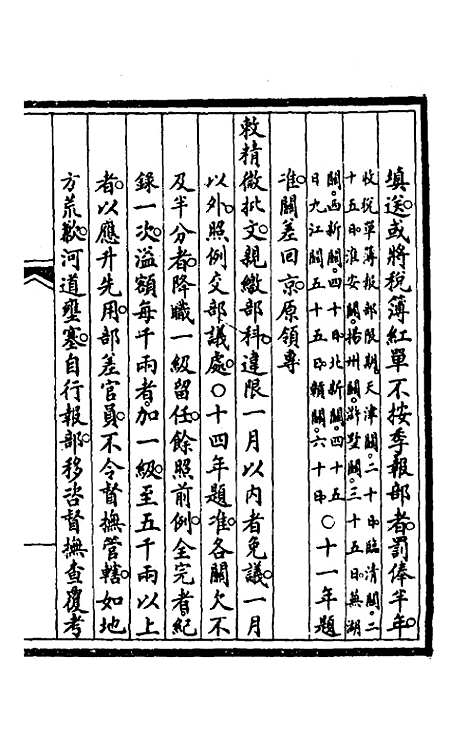 填送或將稅簿紅單不按季報部者罰俸半年
收稅草簿報部限期天津關二十日臨清關二
十五日淮安關揚州關滸墅關三十五日蕪湖
關西新關四十日北新關四十五
日九江關五十五日贛關六十日○十一年題
准關差回京原領專
敕精微批文親繳部科違限一月以內者免議一月
以外照例交部議處○十四年題准各關欠不
及半分者降職一級留任餘照前例全完者紀
錄一次溢額每千兩者加一級至五千兩以上
者以應升先用部差官員不令督撫管轄如地
方荒歉河道壅塞自行報部移咨督撫查覆考